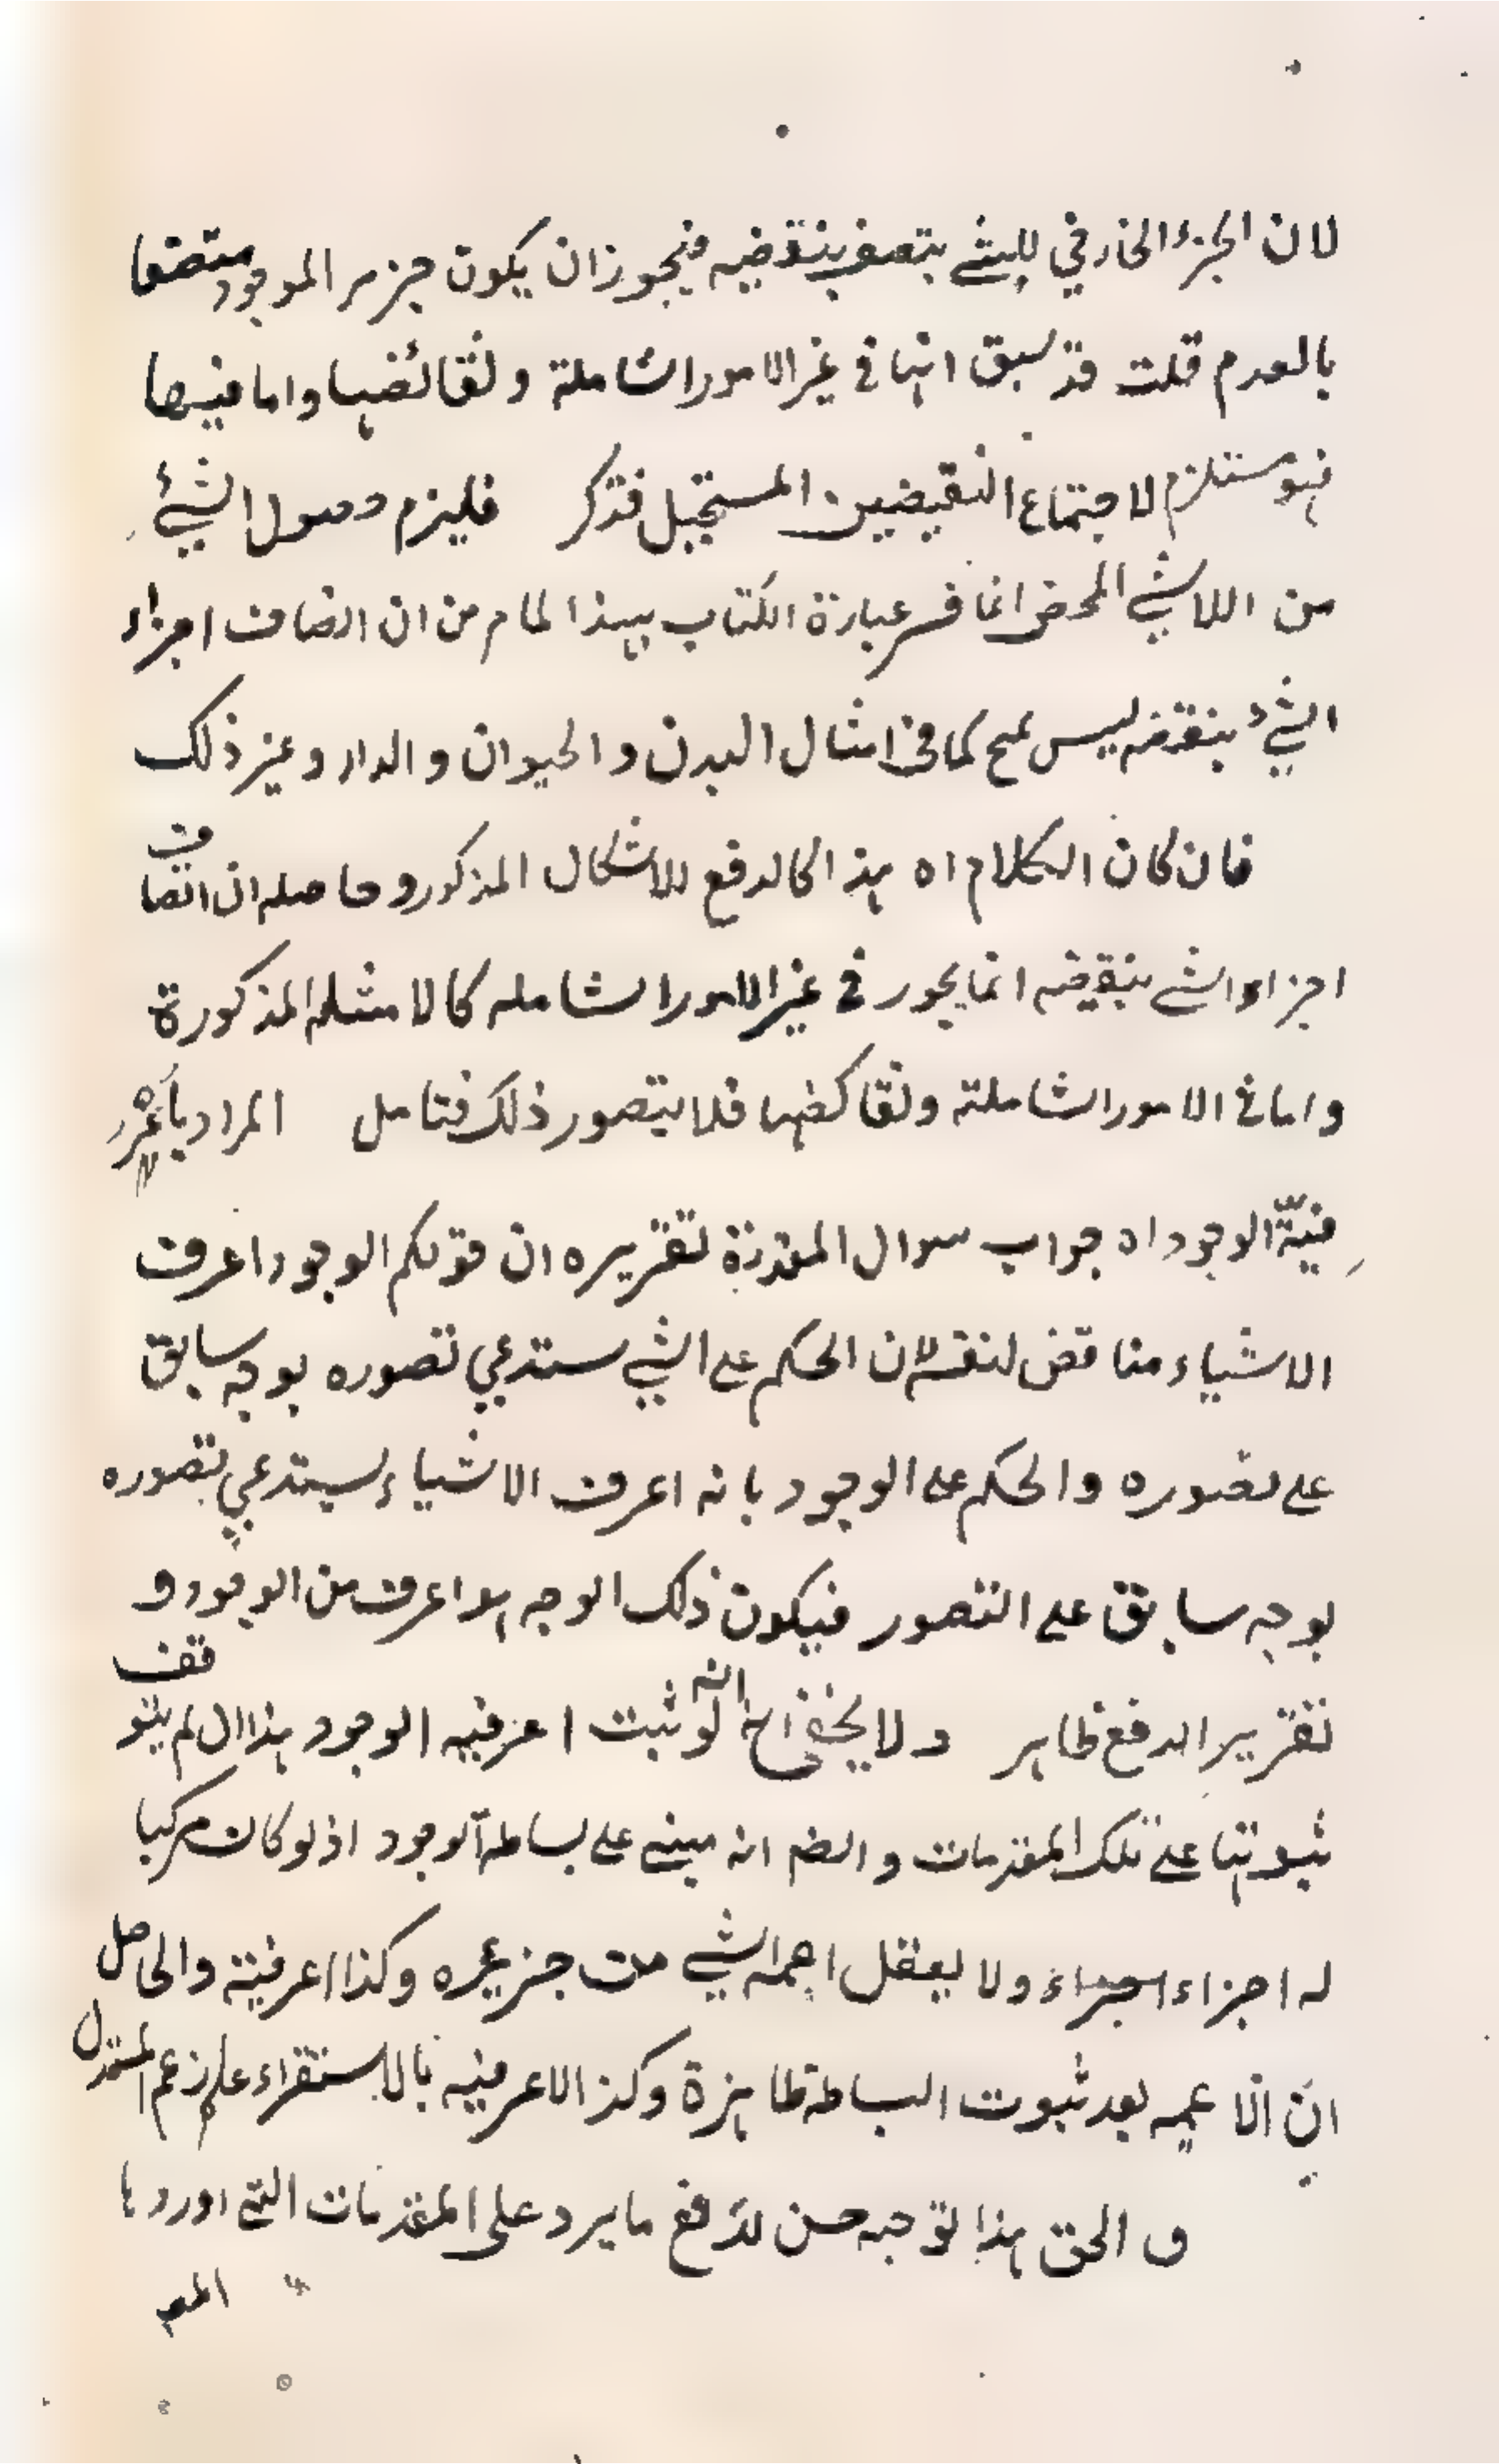 لان الجزء الخارفي للشئ يتصف بنقضيه فيجوز ان يكون جزء الموجود متصفا
بالعدم قلت قد سبق انها في غير الامور الشاملة ونقائضها واما فيها
فهو مستلزم لاجتماع النقيضين المستحيل فتذكر فليزم حصول الشئ
من اللاشئ المحض انما فسر عبارة الكتاب بهذا لما مر من ان اتصاف اجزاء
الشئ بنقيضه ليس بمح كما في امثال البدن والحيوان والدار وغير ذلك
فان كان الكلام اه هذا كالدفع للاشكال المذكور وحاصله ان اتصاف
اجزاء الشئ بنقيضه انما يجوز في غير الامور الشامله كالامثله المذكورة
واما في الامور الشاملة ونقائضها فلا يتصور ذلك فتامل المراد باعر
فيّة الوجود اه جواب سوال المقدرة تقريره ان قولكم الوجود اعرف
الاشياء مناقض لنفسه لان الحكم على الشئ يستدعي تصوره بوجه سابق
على تصوره والحكم على الوجود بانه اعرف الاشياء يستدعي تصوره
بوجه سابق على التصور فيكون ذلك الوجه اعرف من الوجود و
تقرير الدفع ظاهر ولا يخفى انه لو ثبت اعرفيه الوجود بهذا لم يتوقف
ثبوتها على تلك المقدمات والضم انه مبني على بساطة الوجود اذ لو كان مركبا
له اجزاء اجزاء ولا يعقل اعمية الشئ من جزئه وكذا اعرفية والحاصل
ان الاعميه بعد ثبوت البساطة ظاهرة وكذا الاعرفيه بالاستقراء على زعم المستدل
و الحق هذا توجبه حسن لدفع ما يرد على المقدمات التي اوردها
المص